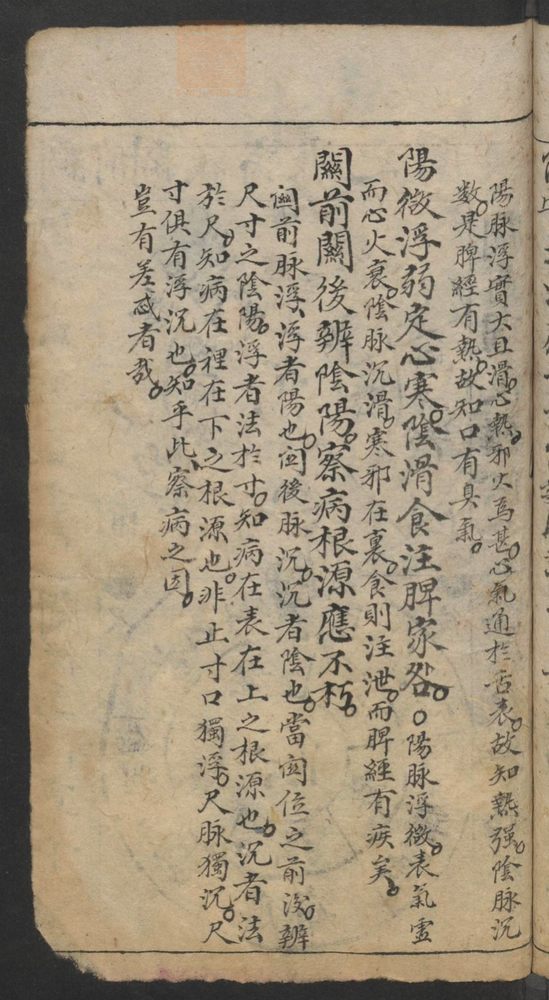 陽脉浮實大且滑。心熱。邪火爲甚。心氣通於舌表。故知熱强。陰脉沉
数。是脾經有熱。故知口有臭氣。
陽微浮弱定心寒。陰滑食注脾家咎。○陽脉浮微。表氣虛
而心火衰。陰脉沉滑。寒邪在裏。食則注泄。而脾經有疾矣。
關前關後辨陰陽。察病根源應不朽。
関前脉浮。浮者陽也。関後脉沉。沉者陰也。當関位之前後。辨
尺寸之陰陽。浮者法於寸。知病在表在上之根源也。沉者法
於尺。知病在裡在下之根源也。非止寸口獨浮。尺脉獨沉。尺
寸俱有浮沉也。知乎此。察病之因。
豈有差忒者哉。